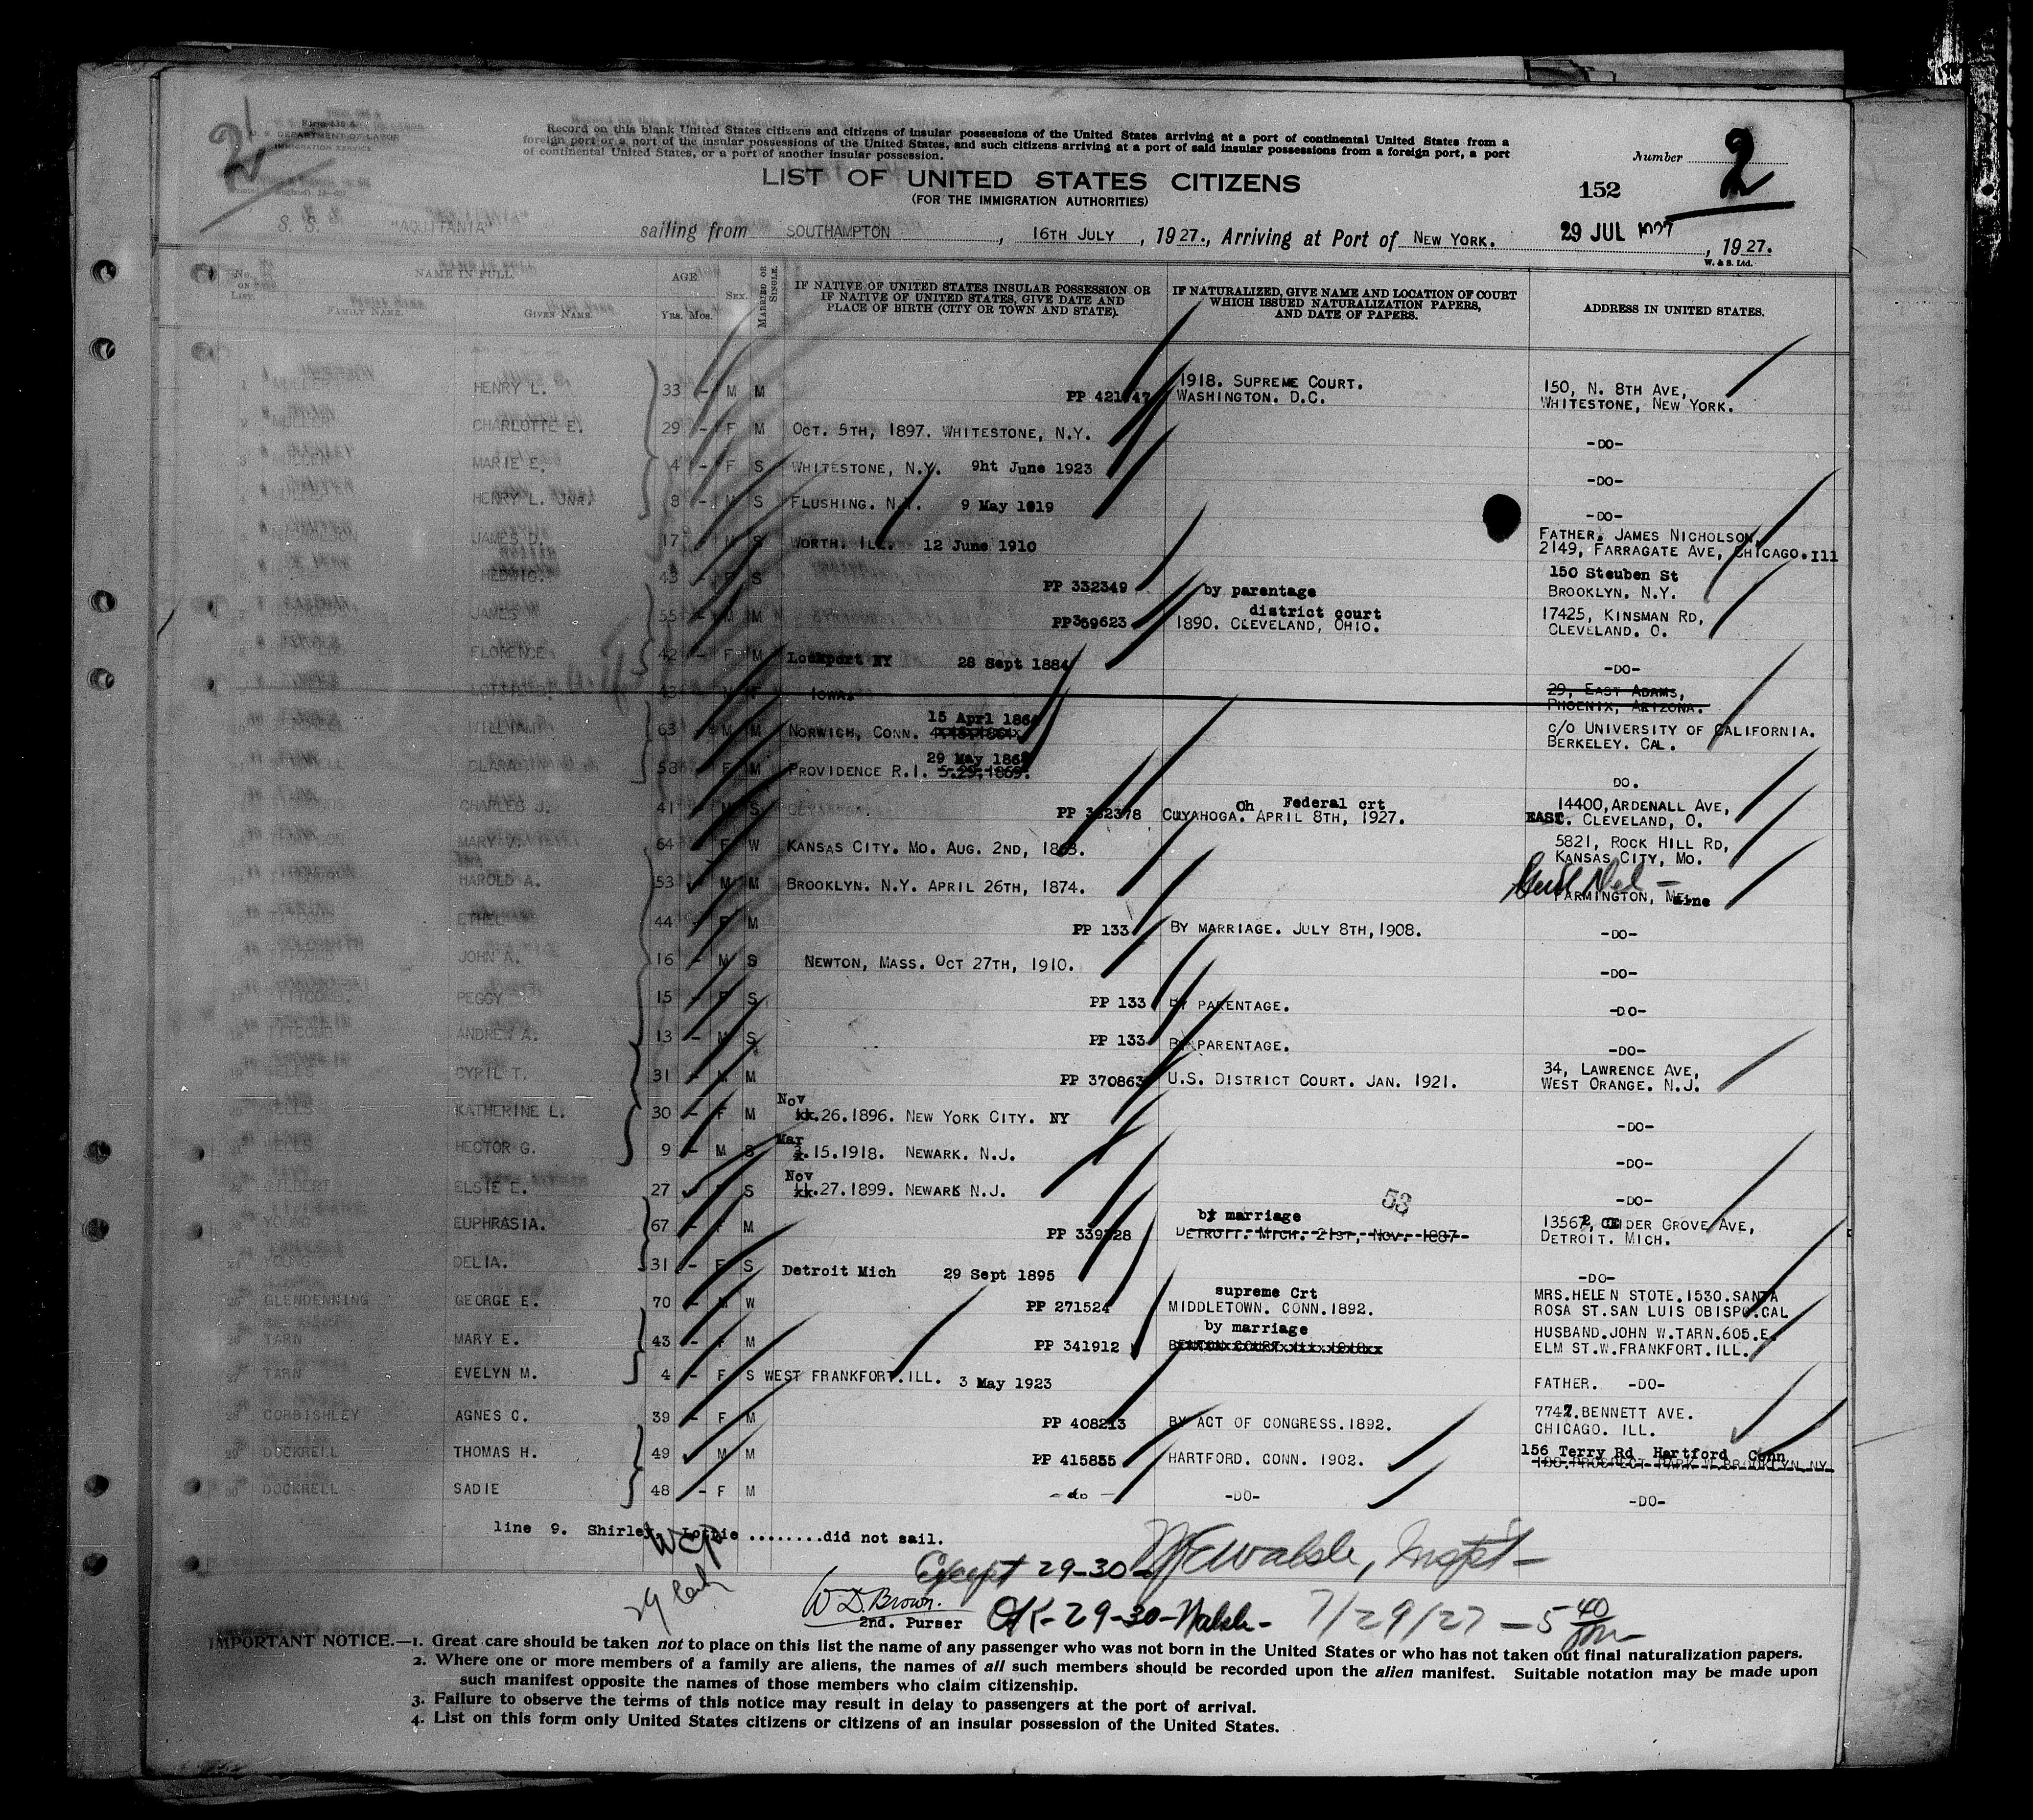 2
Form 630 A
U. S. DEPARTMENT OF LABOR
IMMIGRATION SERVICE
Record on this blank United States citizens and citizens of insular possessions of the United States arriving at a port of continental United States from a
foreign port or a port of the insular possessions of the United States, and such citizens arriving at a port of said insular possessions from a foreign port, a port
of continental United States, or a port of another insular possession.
Number 2
LIST OF UNITED STATES CITIZENS
152
(FOR THE IMMIGRATION AUTHORITIES)
S. S. "AQUITANIA" sailing from SOUTHAMPTON, 16TH JULY, 1927., Arriving at Port of NEW YORK. 29 JUL 1927, 1927.
W. & S. Ltd.
No. ON LIST. NAME IN FULL. FAMILY NAME. GIVEN NAME. AGE YRS. MOS. SEX. MARRIED OR SINGLE. IF NATIVE OF UNITED STATES INSULAR POSSESSION OR IF NATIVE OF UNITED STATES, GIVE DATE AND PLACE OF BIRTH (CITY OR TOWN AND STATE). IF NATURALIZED, GIVE NAME AND LOCATION OF COURT WHICH ISSUED NATURALIZATION PAPERS, AND DATE OF PAPERS. ADDRESS IN UNITED STATES.
1 MULLER HENRY L. 33 - M M PP 421147 1918. SUPREME COURT. WASHINGTON. D.C. 150, N. 8TH AVE, WHITESTONE, NEW YORK.
2 MULLER CHARLOTTE E. 29 - F M OCT. 5TH, 1897. WHITESTONE, N.Y. -DO-
3 MULLER MARIE E. 4 - F S WHITESTONE, N.Y. 9ht June 1923 -DO-
4 MULLER HENRY L. JNR. 8 - M S FLUSHING. N.Y. 9 May 1919 -DO-
JAMES D. 17 - M S WORTH. ILL. 12 June 1910 FATHER. JAMES NICHOLSON, 2149, FARRAGATE AVE, CHICAGO.Ill
HEDWIG. 43 - F S PP 332349 by parentage 150 Steuben St BROOKLYN. N.Y.
JAMES 55 - M M PP359623 district court 1890. CLEVELAND, OHIO. 17425, KINSMAN RD, CLEVELAND. O.
FLORENCE 42 - F M Lockport NY 28 Sept 1884 -DO-
IOWA. 29, EAST ADAMS, PHOENIX, ARIZONA.
WILLIAM 63 - M M NORWICH, CONN. 15 Aprl 1864 C/O UNIVERSITY OF CALIFORNIA. BERKELEY. CAL.
CLARA 58 - F M PROVIDENCE R.I. 29 May 1869 5.29.1869. DO.
CHARLES J. 41 - M S PP 332378 Oh Federal crt CUYAHOGA. APRIL 8TH, 1927. 14400, ARDENALL AVE, EAST. CLEVELAND, O.
MARY V. 64 - F W KANSAS CITY. MO. AUG. 2ND, 1863. 5821, ROCK HILL RD, KANSAS CITY, MO.
HAROLD A. 53 M M BROOKLYN. N.Y. APRIL 26TH, 1874. FARMINGTON, Maine
TITCOMB ETHEL 44 - F M PP 133 BY MARRIAGE. JULY 8TH, 1908. -DO-
TITCOMB JOHN A. 16 - M S NEWTON, MASS. OCT 27TH, 1910. -DO-
17 TITCOMB. PEGGY 15 - F S PP 133 BY PARENTAGE. -DO-
TITCOMB ANDREW A. 13 - M S PP 133 BY PARENTAGE. -DO-
CYRIL T. 31 - M M PP 370863 U.S. DISTRICT COURT. JAN. 1921. 34, LAWRENCE AVE, WEST ORANGE. N.J.
20 KATHERINE L. 30 - F M Nov xx.26.1896. NEW YORK CITY. NY -DO-
21 HECTOR G. 9 - M S Mar 15.1918. NEWARK. N.J. -DO-
22 ELSIE E. 27 - F S Nov xx.27.1899. NEWARK N.J. -DO-
53
23 YOUNG EUPHRASIA. 67 - F M PP 339328 by marriage DETROIT. MICH. 21ST, NOV. 1887 13562, CINDER GROVE AVE, DETROIT. MICH.
24 YOUNG DELIA. 31 - F S Detroit Mich 29 Sept 1895 -DO-
25 GLENDENNING GEORGE E. 70 - M W PP 271524 supreme Crt MIDDLETOWN. CONN.1892. MRS.HELEN STOTE.1530.SANTA ROSA ST.SAN LUIS OBISPO.CAL
26 TARN MARY E. 43 - F M PP 341912 by marriage HUSBAND.JOHN W.TARN.605.E. ELM ST.W.FRANKFORT.ILL.
27 TARN EVELYN M. 4 - F S WEST FRANKFORT.ILL. 3 May 1923 FATHER. -DO-
28 CORBISHLEY AGNES C. 39 - F M PP 408213 BY ACT OF CONGRESS.1892. 7747.BENNETT AVE. CHICAGO. ILL.
29 DOCKRELL THOMAS H. 49 M M PP 415855 HARTFORD. CONN. 1902. 156 Terry Rd Hartford Conn
30 DOCKRELL SADIE 48 - F M - do - -DO- -DO-
line 9. Shirley, Lottie ........did not sail.
Except 29-30 Walsh, Inspt-
W D. Brown.
2nd. Purser
OK-29-30-Walsh- 7/29/27 - 5 40 pm
IMPORTANT NOTICE.—1. Great care should be taken not to place on this list the name of any passenger who was not born in the United States or who has not taken out final naturalization papers.
2. Where one or more members of a family are aliens, the names of all such members should be recorded upon the alien manifest. Suitable notation may be made upon
such manifest opposite the names of those members who claim citizenship.
3. Failure to observe the terms of this notice may result in delay to passengers at the port of arrival.
4. List on this form only United States citizens or citizens of an insular possession of the United States.